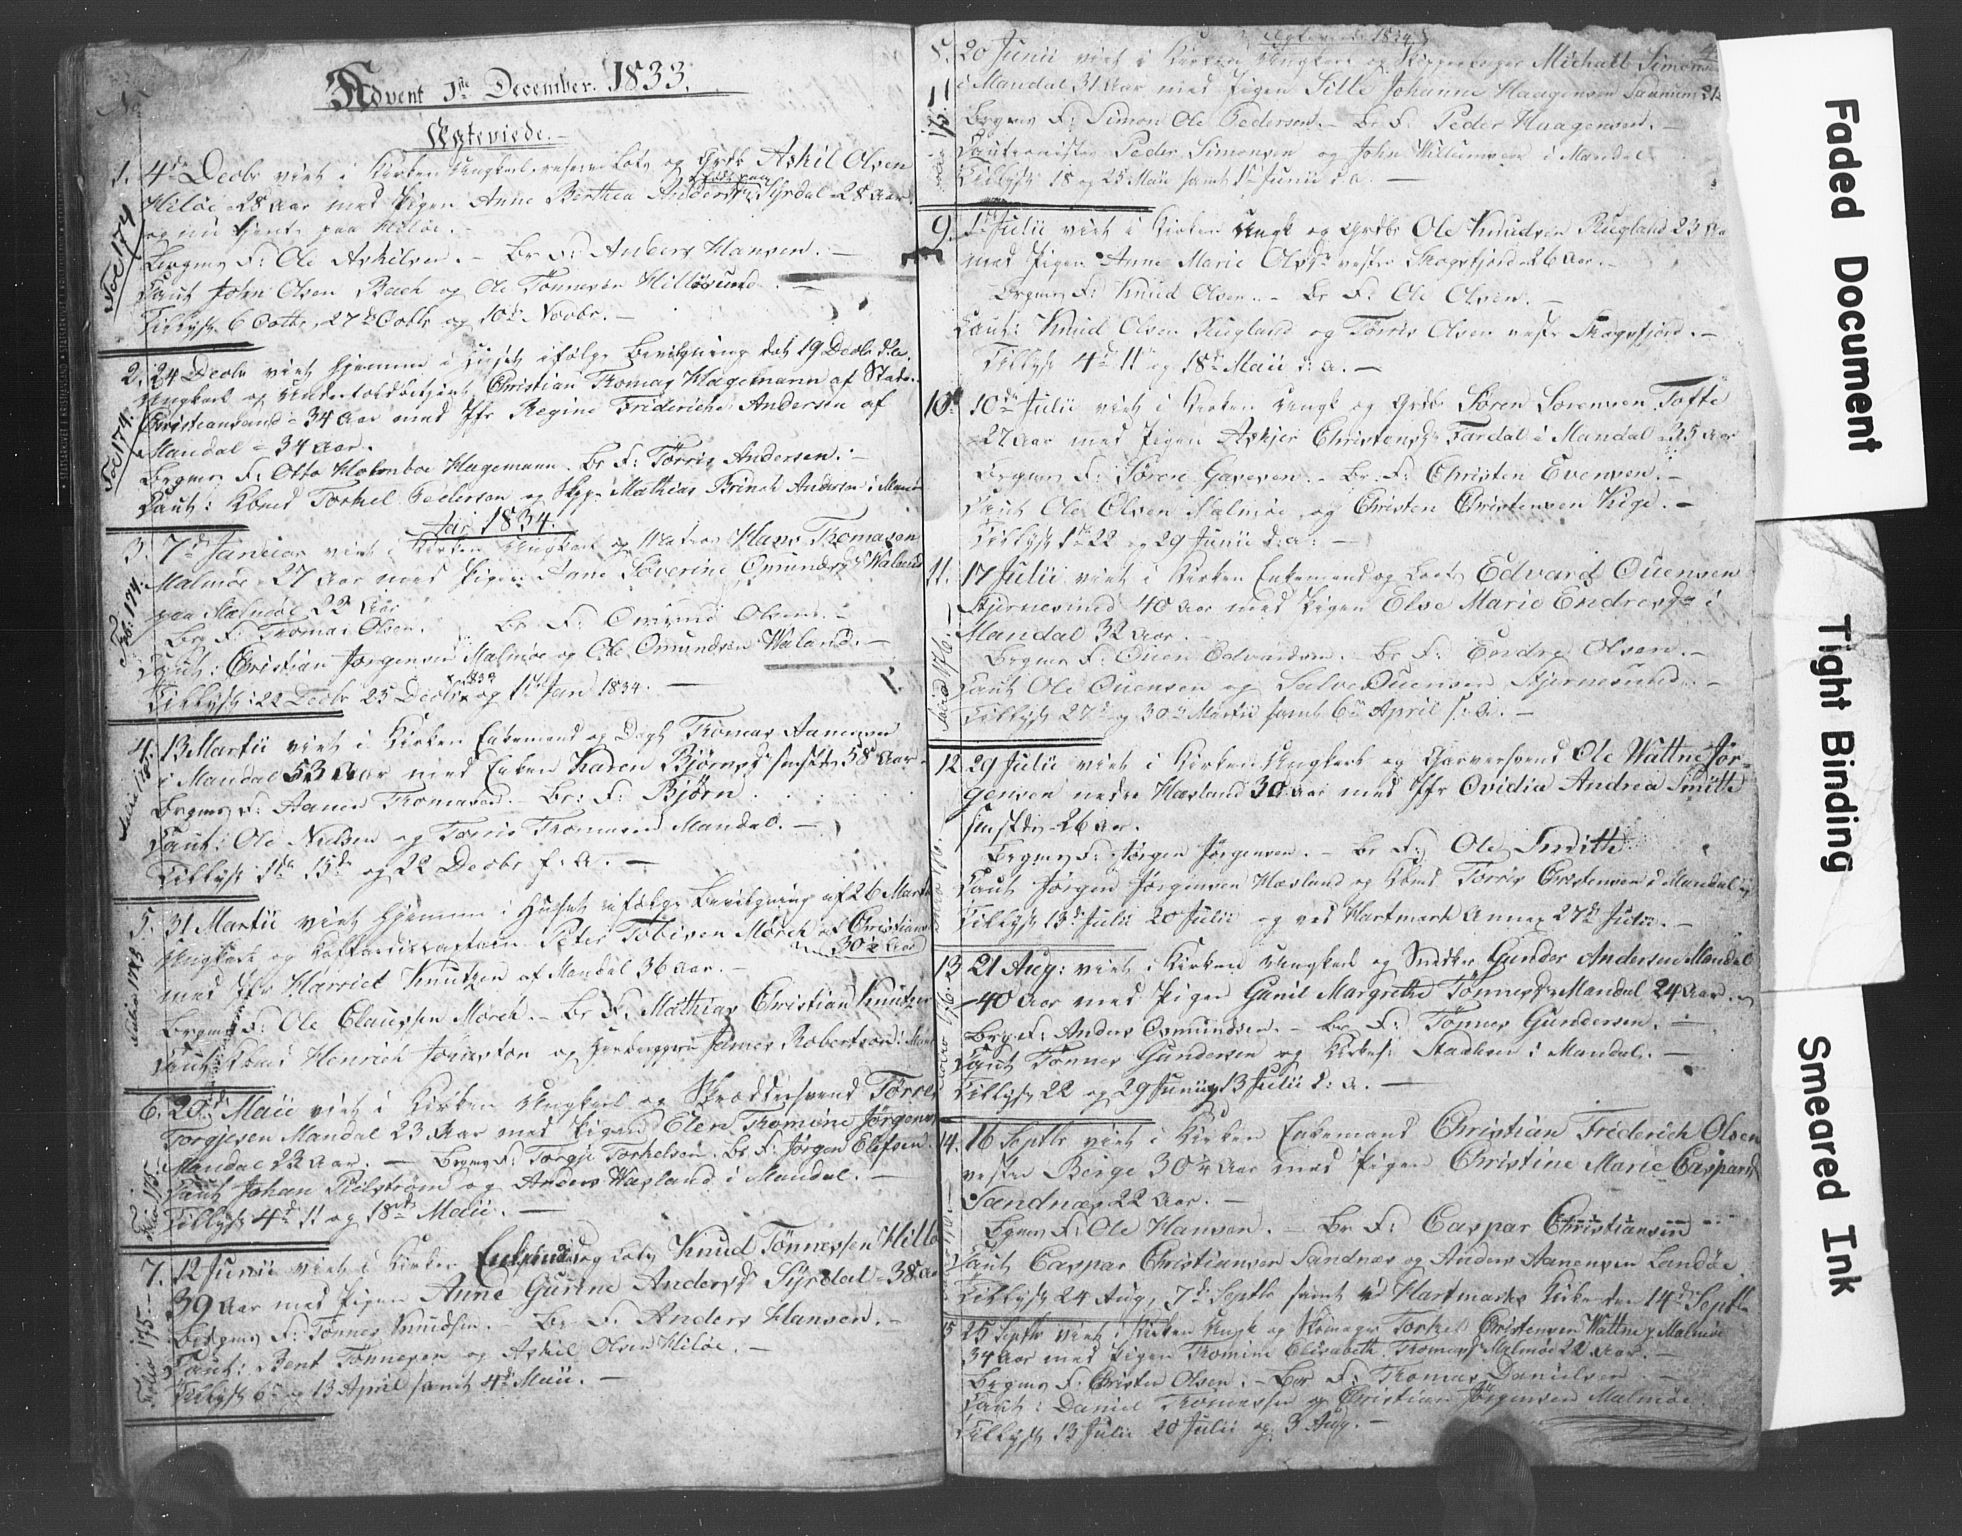 Advent 1ste December. 1833.
Ægteviede.
1. 4de Decbr viet i Kirken Ungkarl, Lots og Grdbr Askil Olsen
Hiløe 28 Aar med Pigen Anne Berthea Andersd. Syrdal 28 Aar
og nu tjente paa Hiløe.
Brgms F: Ole Askilsen. – Br F: Anders Hansen. –
Caut John Olsen Bach og Ole Tønnesen Hillesund
Tillyst 6 Octbr, 27de Octbr og 10de Novbr. –
Foe 174
2. 24 Decbr viet hjemme i Huset ifølge Bevilgning dat 19 Decbr d.a.
Ungkarl og Christian Thomas Hagemann af Staden
Christiansand – 34 Aar med Jfr Regine Frideriche Andersen af
Mandal – 34 Aar.
Brgms F: Otto Holmboe Hagemann. Br F: Tørris Andersen. –
Caut: Kbmd Torkel Pedersen og Skpp: Mathias Brinch Andersen i Mandal
Foe 174.
Aar 1834.
3. 7de Januar viet i Kirken Ungkarl og Matros Hans Thomasen
Malmøe 27 Aar med Pigen Jane Severine Omundsd. Waland
paa Malmøe 22 Aar
Br F: Thomas Olsen. Br F: Omund Olsen. –
Caut: Christian Jørgensen Malmøe og Ole Omundsen Waland. –
Tillyst: 22 Decbr 25 Decbr 1833 og 1ste Jan 1834. –
Fol: 174.
4. 13 Martii viet i Kirken Enkemand og Dagl Thomas Aanensen
i Mandal 53 Aar med Enken Karen Bjørnsd. smstds 58 Aar –
Brgms F: Aanen Thomasen. – Br: F: Bjørn
Caut: Ole Nielsen og Tørris Thomasen Mandal. –
Tillyst 1ste 15de og 22 Decbr f: A. –
5. 31 Martii viet hjemme i Huset ifølge Bevilgning af 26 Martii
Ungkarl og Peter Tobisen Mörch af Christians
30½ Aar
med Jfr Harriet Knutzen af Mandal 36 Aar. –
Brgms F: Ole Claussen Mörch. – Br F. Mathias Christian Knutzen
Caut Kbmd Henrich Johnston og James Robertson i Mandal
6. 20de Maii viet i Kirken Ungkarl og Skræddersvend Tørres
Torgjesen Mandal 23 Aar med Pigen Elen Thomine Jørgensd
Mandal 22 Aar. – Brgms F: Torgje Torkelsen. Br F: Jørgen Elefsen.
Caut Johan Pilstrøm og Anders Wasland i Mandal. –
Tillyst 4de 11 og 18de Maii. –
Folio 175
7. 12 Junii viet i Kirken Enkemand og Lots Knud Tønnessen Hille
39 Aar med Pigen Anne Gurine Andersd. Syrdal – 38 Aar
Brgms F: Tønnes Knudsen. – Br F. Anders Hansen. –
Caut: Bent Tønnesen og Askil Olsen Hiløe. –
Tillyst 6te og 13 April samt 4de Maii. –
Folio 175
Ægteviede 1834
8. 20 Junii viet i Kirken Ungkarl og Michaël Simonsen
i Mandal 31 Aar med Pigen Sille Johanne Haagensen Sannum 21
Brgms F: Simon Ole Pedersen. – Br F. Peder Haagensen. –
Cautionister Peder Simonsen og John Willumsen i Mandal
Tillyst 18 og 25 Maii samt 1ste Junii d.a. –
9. 1ste Julii viet i Kirken Ungk og Grdbr Ole Knudsen Rugland 23 Aar
med Pigen Anne Marie Olsd. vestre Skogsfjord 26 Aar.
Brgms F: Knud Olsen. – Br F: Ole Olsen. –
Caut: Knud Olsen Rugland og Tørris Olsen vestre Skogsfjord. –
Tillyst 4de 11te og 18de Maii d.a. –
10. 10de Julii viet i Kirken Ungk og Grdbr Søren Sorensen Tofte
27 Aar med Pigen Askjer Christensd. Fardal i Mandal 25 Aar
Brgms F: Søren – Br F: Christen Evensen. –
Caut Ole Olsen Malmøe og Christen Christensen Kige. –
Tillyst 1ste 22 og 29 Junii d:a: –
11. 17 Julii viet i Kirken Enkemand og Lods Edvard Ouensen
Stjernesund 40 Aar med Pigen Else Marie Endresd. i
Mandal 32 Aar. –
Brgms F: Ouen Edvardsen. – Br F: Endre Olsen. –
Caut Ole Ouensen og Salve Ouensen Stjernesund. –
Tillyst 27de og 30te Martii samt 6te April d: A. –
12. 29 Julii viet i Kirken Ungkarl og Garversvend Ole Wattne Jør-
gensen nedre Hæsland 30 Aar med Jfr Ovidia Andrea Smitt
smstds 26 Aar.
Brgms F: Jørgen Jørgensen. – Br F: Ole Smith
Caut Jørgen Jørgensen Hæsland og Kbmd Tørris Christensen i Mandal
Tillyst 13de Julii 20 Julii og ved Hartmark Annex 27de Julii. –
13. 21 Aug: viet i Kirken Ungkarl og Snedker Gunder Andersen Mandal
40 Aar med Pigen Gunil Margrethe Tönnesd. Mandal 24 Aar. –
Brg F: Anders Osmundsen. – Br F: Tönnes Gundersen. –
Caut Tönnes Gundersen og Stadsen i Mandal. –
Tillyst 22 og 29 Junii og 13 Julii d: A. –
14. 16 Septbr viet i Kirken Enkemand Christian Friderich Olsen
vestre Berge 30½ Aar med Pigen Christine Marie Caspersd
Sandnæs 22 Aar. –
Bgms F: Ole Hansen. – Br F: Caspar Christiansen
Caut Caspar Christiansen Sandnæs og Anders Aanensen Landøe.
Tillyst 24 Aug, 7de Septbr samt ved Hartmarks Kirke den 14de Septbr
15. 25 Septbr viet i Kirken Ungk og Skomager Torkel Christensen Wattne Malmøe
34 Aar med Pigen Thomine Elisabeth Thomasd. Malmøe 22 Aar. –
Brgms F: Christen Olsen. – Br F: Thomas Danielsen –
Caut: Daniel Thomassen og Christian Jørgensen Malmøe
Tillyst 13 Julii 20 Julii og 3 Aug. –
Faded Document
Tight Binding
Smeared Ink